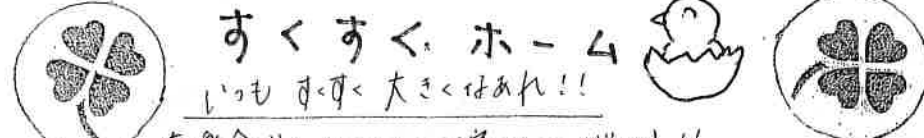 すくすくホーム
いつも すくすく 大きくなあれ!!